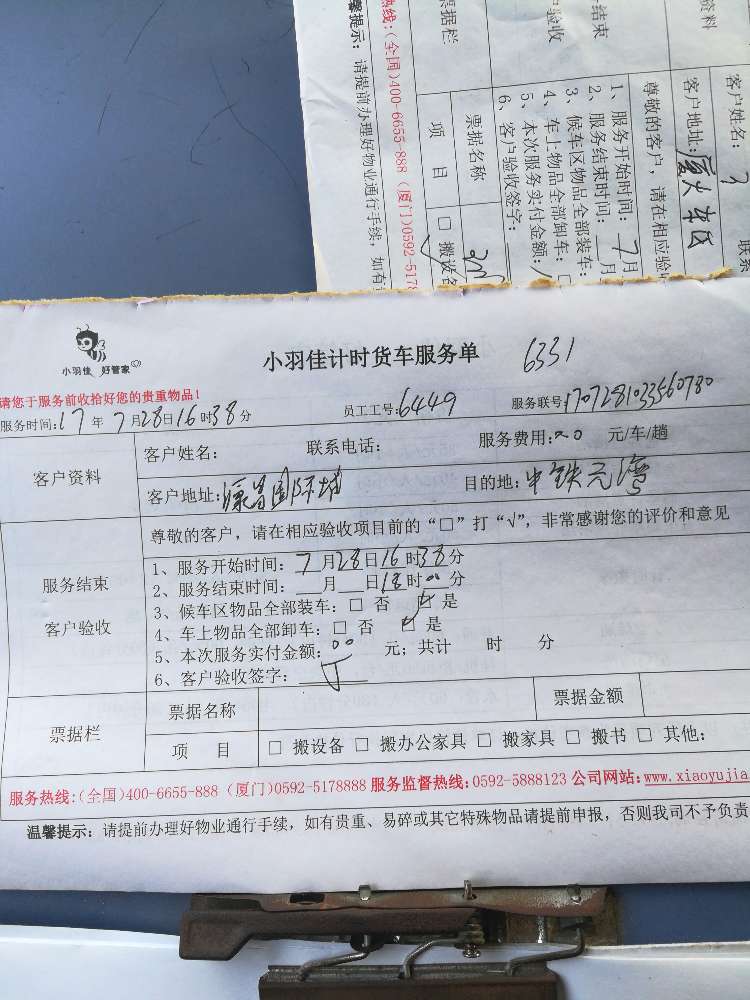 客户姓名:
联系
客户地址:厦大
尊敬的客户,请在相应验收
1、服务开始时间:7月
2、服务结束时间: 月
3、候车区物品全部装车:□
4、车上物品全部卸车:□
5、本次服务实付金额:
6、客户验收签字:
资料
结束
验收
票据栏
票据名称
项 目
□ 搬设备
热线:(全国)400-6655-888 (厦门)0592-5178
馨提示: 请提前办理好物业通行手续,如有
小羽佳 好管家
小羽佳计时货车服务单
6331
请您于服务前收拾好您的贵重物品!
服务时间:17 年 7 月28日16时38分
员工工号:6449
服务联号:1707281033560780
客户资料
客户姓名:
联系电话:
服务费用:20 元/车/趟
客户地址:国际城
目的地:中铁元湾
服务结束
客户验收
尊敬的客户,请在相应验收项目前的“□”打“√”,非常感谢您的评价和意见
1、服务开始时间:7月28日16时38分
2、服务结束时间: 月 日18时00分
3、候车区物品全部装车:□ 否 ☑ 是
4、车上物品全部卸车:□ 否 ☑ 是
5、本次服务实付金额:00 元;共计 时 分
6、客户验收签字:
票据栏
票据名称
票据金额
项 目
□ 搬设备 □ 搬办公家具 □ 搬家具 □ 搬书 □ 其他:
服务热线:(全国)400-6655-888 (厦门)0592-5178888 服务监督热线:0592-5888123 公司网站:www.xiaoyujia
温馨提示:请提前办理好物业通行手续,如有贵重、易碎或其它特殊物品请提前申报,否则我司不予负责